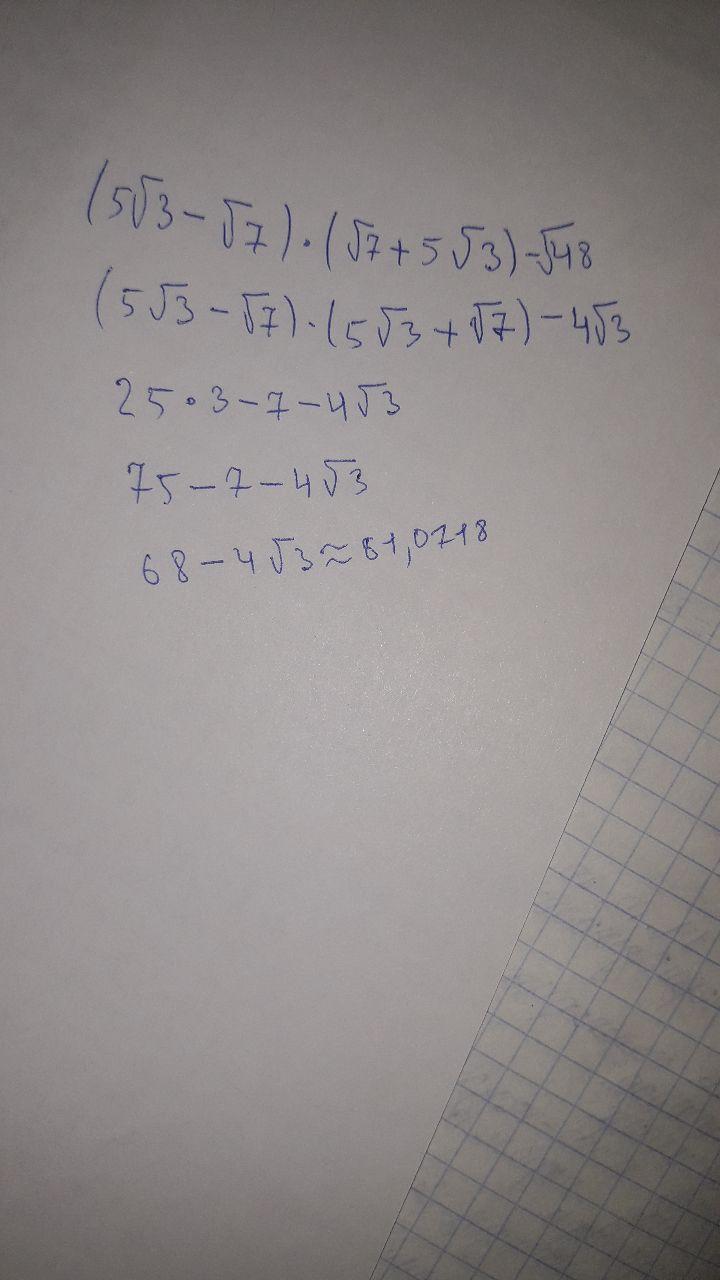 (5√3-√7)·(√7+5√3)-√48
(5√3-√7)·(5√3+√7)-4√3
25·3-7-4√3
75-7-4√3
68-4√3≈61,0718